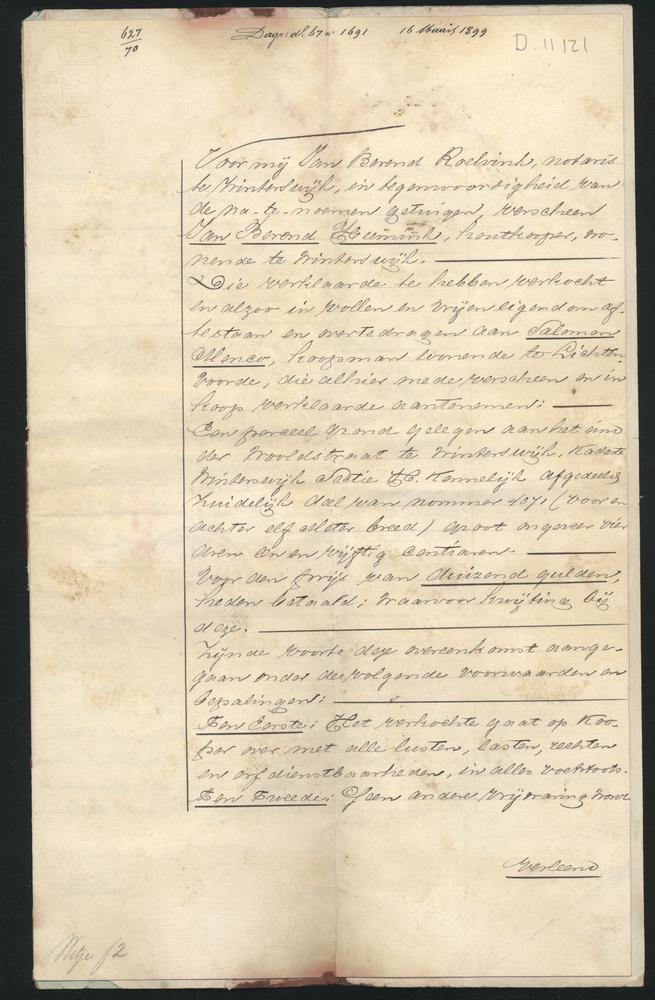 627
70
Dagr. dl. 67 no 1691 16 Maart 1899
D. 11121
Voor mij Jan Berend Roelvink, notaris
te Winterswijk, in tegenwoordigheid van
de na-te-noemen getuigen, verscheen
Jan Berend Hummink, houtkooper, wo-
nende te Winterswijk.
Die verklaarde te hebben verkocht
en alzoo in vollen en vrijen eigendom af-
testaan en overtedragen aan Salomon
Menco, koopman wonende te Lichten-
voorde, die alhier mede verscheen en in
koop verklaarde aantenemen:
Een perceel grond gelegen aan het eind
der Wooldstraat te Winterswijk, kadaster
Winterswijk Sectie H. kennelijk afgedeeld
zuidelijk deel van nommer 4371 (voor en
achter elf Meter breed) groot ongeveer vier
Aren één en vijftig centiaren.
Voor den prijs van duizend gulden,
heden betaald; waarvoor kwijting bij
deze.
Zijnde voorts deze overeenkomst aange-
gaan onder de volgende voorwaarden en
bepalingen:
Ten Eerste: Het verkochte gaat op Koo-
per over met alle lusten, lasten, rechten
en erfdienstbaarheden, in alles voetstoots.
Ten Tweede: Geen andere vrijwaring wordt
verleend
f2